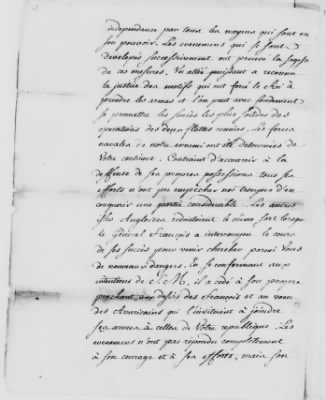 dependance par tous les moyens qui sont en
son pouvoir. Les evenemens qui se sont
developés successivement ont prouvé la sagesse
de ces mesures. Un allié puissant a reconnu
la justice des motifs qui ont forcé le Roi à
prendre les armes et l'on peut avec fondement
se promettre les succès les plus solides des
operations des deux flottes reunies. Les forces
navales de notre ennemi ont été detournées du
Votre continent. Contraint d'accourir à la
deffense de ses propres possessions tous ses
efforts n'ont pu empêcher nos troupes d'en
conquerir une partie considerable. Les autres
isles Angloises redoutoient le même sort lorsque
le Général François a interrompu le cours
de ses succès pour venir chercher parmi Vous
de nouveaux dangers. En se conformant aux
intentions de S. M., il a cédé à son propre
penchant, aux desirs des François et au vœu
des Americains qui l'invitoient à joindre
ses armes à celles de Votre republique. Les
evenemens n'ont pas repondu complettement
à son courage et à ses efforts, mais son